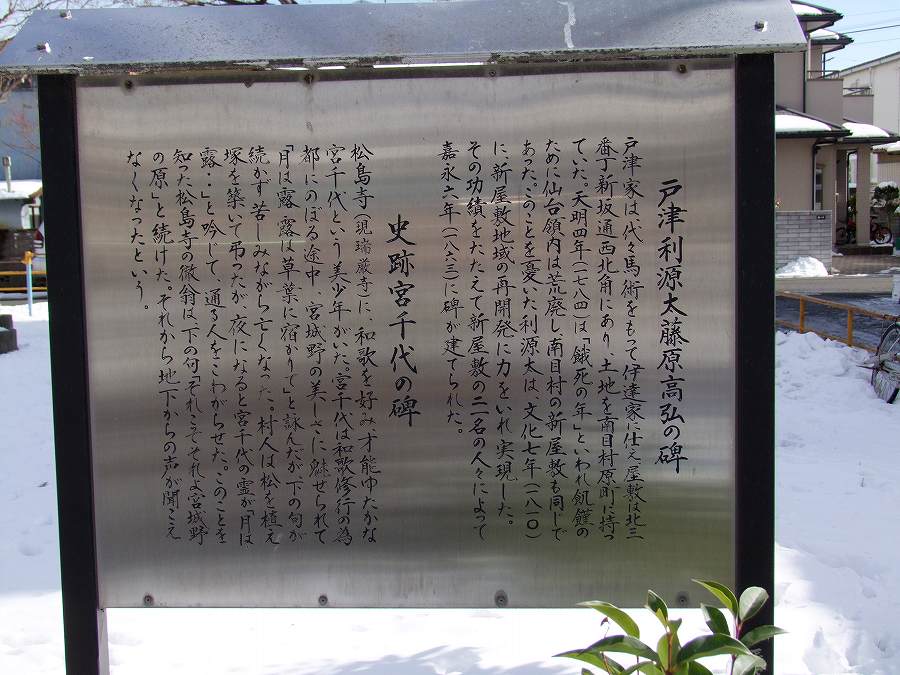 戸津利源太藤原高弘の碑
戸津家は、代々馬術をもって伊達家に仕え屋敷は北三
番丁新坂通西北角にあり、土地を南目村原町に持っ
ていた。天明四年（一七八四）は「餓死の年」といわれ飢饉の
ために仙台領内は荒廃し南目村の新屋敷も同じで
あった。このことを憂いた利源太は、文化七年（一八一〇）
に新屋敷地域の再開発に力をいれ実現した。
その功績をたたえて新屋敷の二名の人々によって
嘉永六年（一八六三）に碑が建てられた。
史跡宮千代の碑
松島寺（現瑞厳寺）に、和歌を好み才能ゆたかな
宮千代という美少年がいた。宮千代は和歌修行の為
都にのぼる途中、宮城野の美しさに魅せられて
「月は露 露は草葉に宿かりて」と詠んだが下の句が
続かず苦しみながら亡くなった。村人は松を植え
塚を築いて弔ったが夜になると宮千代の霊が「月は
露・・」と吟じて、通る人をこわがらせた。このことを
知った松島寺の徹翁は下の句「それこそそれよ宮城野
の原」と続けた。それから地下からの声が聞こえ
なくなったという。